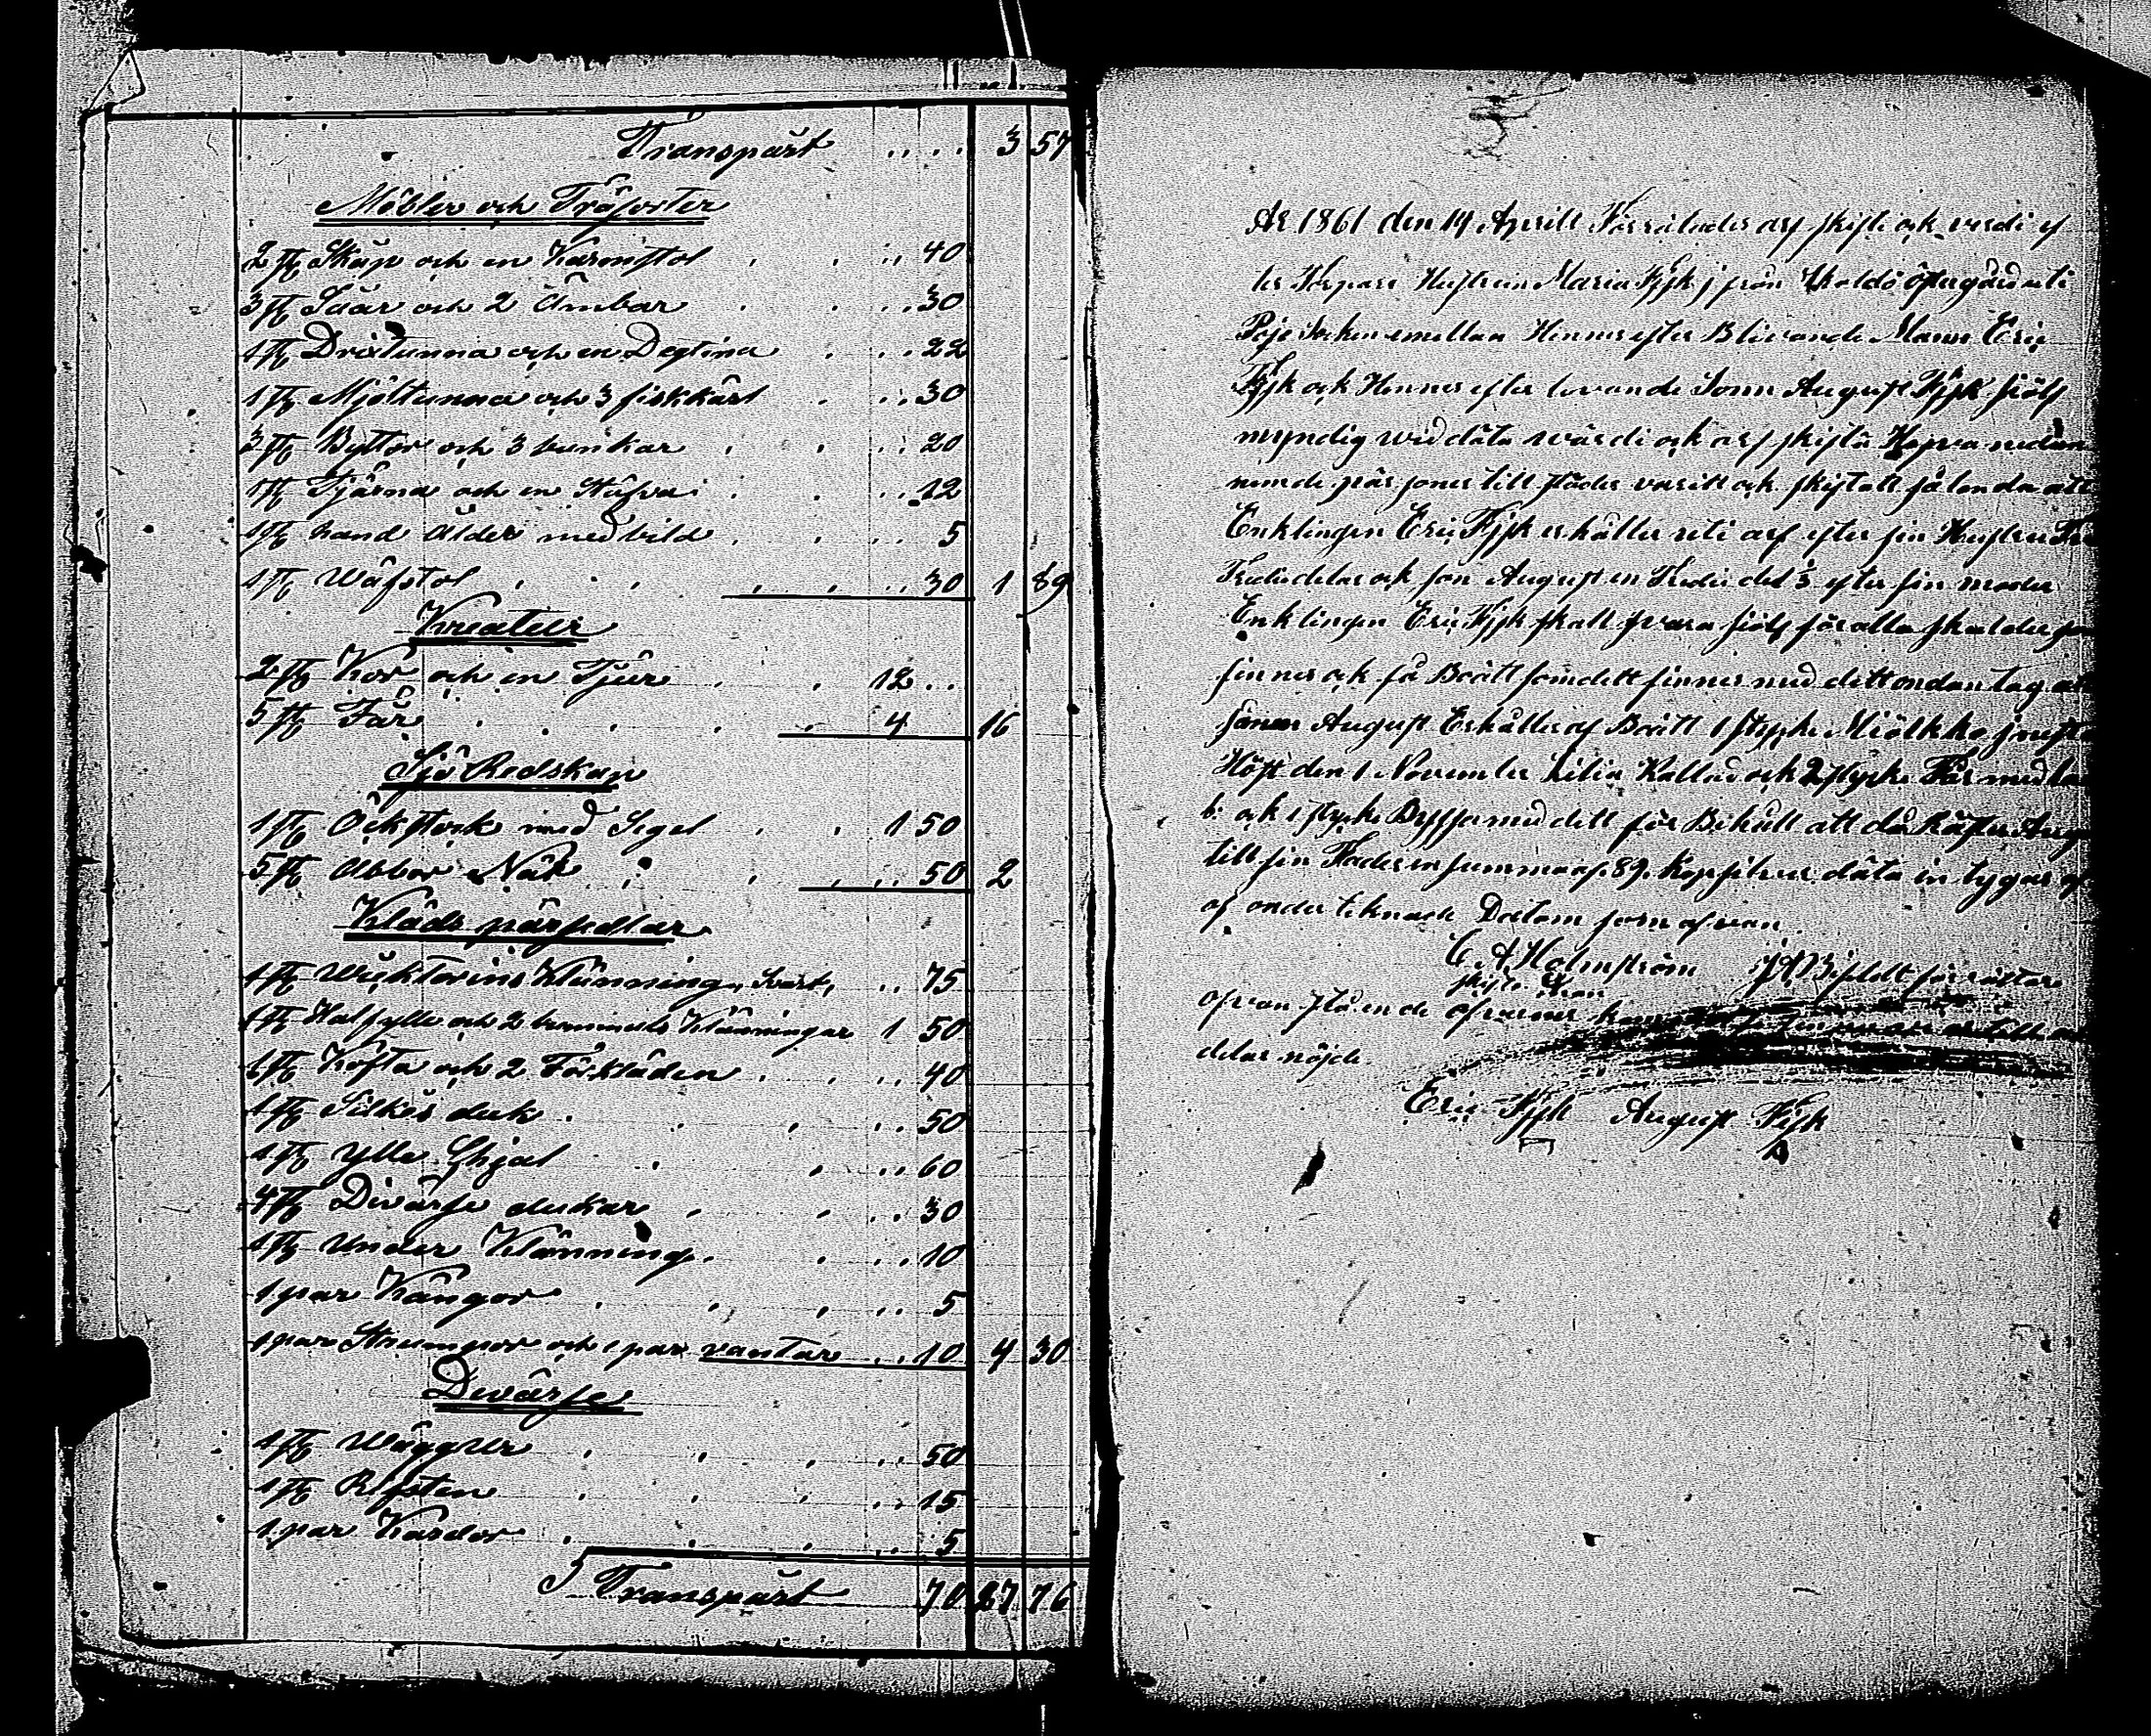 Transpårt .... 3 57
Möbler och Träsorter
2 st Skåp och en Karmstol . . .. 40
3 st Såar och 2 Ämbar . . .. 30
1 st Drixtunna och en Degtina . .. 22
1 st Mjöltunna och 3 fiskkärl . .. 30
3 st Byttor och 3 bunkar . . .. 20
1 st Tjärna och en Stäfva . . .. 12
1 st hand Ålder med bild . . .. 5
1 st Wäfstol . . . . . .. 30 1 89
Kreatur
2 st Kor och en Tjur . . 12 ..
5 st Får . . . . . 4 16
Sjö Redskap
1 st Öckstock med Segel . . 1 50
5 st Abbor Nät . . . .. 50 2
Kläds pärsedlar
1 st Wicktorins Klänning, Svart, .. 75
1 st Halfylle och 2 bommuls Klänningar 1 50
1 st Kofta och 2 Förkläden . . .. 40
1 st Silkes duk . . . .. 50
1 st ylle Shjal . . .. 60
4 st Divärse dukar . . .. 30
1 st Under Klänning . . .. 10
1 par Kängor . . . .. 5
1 par Strumpor och 1 par vantar .. 10 4 30
Divärse
1 st Wäggur . . . .. 50
1 st Rysten . . . .. 15
1 par Kardor . . . .. 5
Transpårt 70 27 76
År 1861 den 14 Aprill Förrätades arf skifte ock verdi ef
ter Torpare Hustrun Maria Fysk j från Skaldö öfvergård uti
Poje Socken emellan Hennes efter Blivande Mann Eric
Fysk ock Hennes efter levande Sonn August Fysk siölf
myndig wid däta wärdi ock arf skifta Hafva nedan
nemde pärsoner till städes varitt ock skiftatt så londa att
Enklingen Eric Fysk erhåller uti arf efter sin Hustru
Tredie delar ock son August en Tredie del 3 efter sin moder
Enklingen Eric Fysk skall svara siölf för alla skulder
finnes ock få Boätt som dett finnes med dett ondan tag at
sonen August Erhåller af Boätt 1 stycke Miölkko
Höst den 1 November Lilia Kallad ock 2 stycke Får med la
b: ock 1 stycke Byssa med dett för Behåll att då
till sin Fader en summa af 89. Kop silver däta in tygar
af onder teknade Datom som ofvan
C A Holmström
ofvan stående
delar nöjde.
Eric Fysk August Fysk